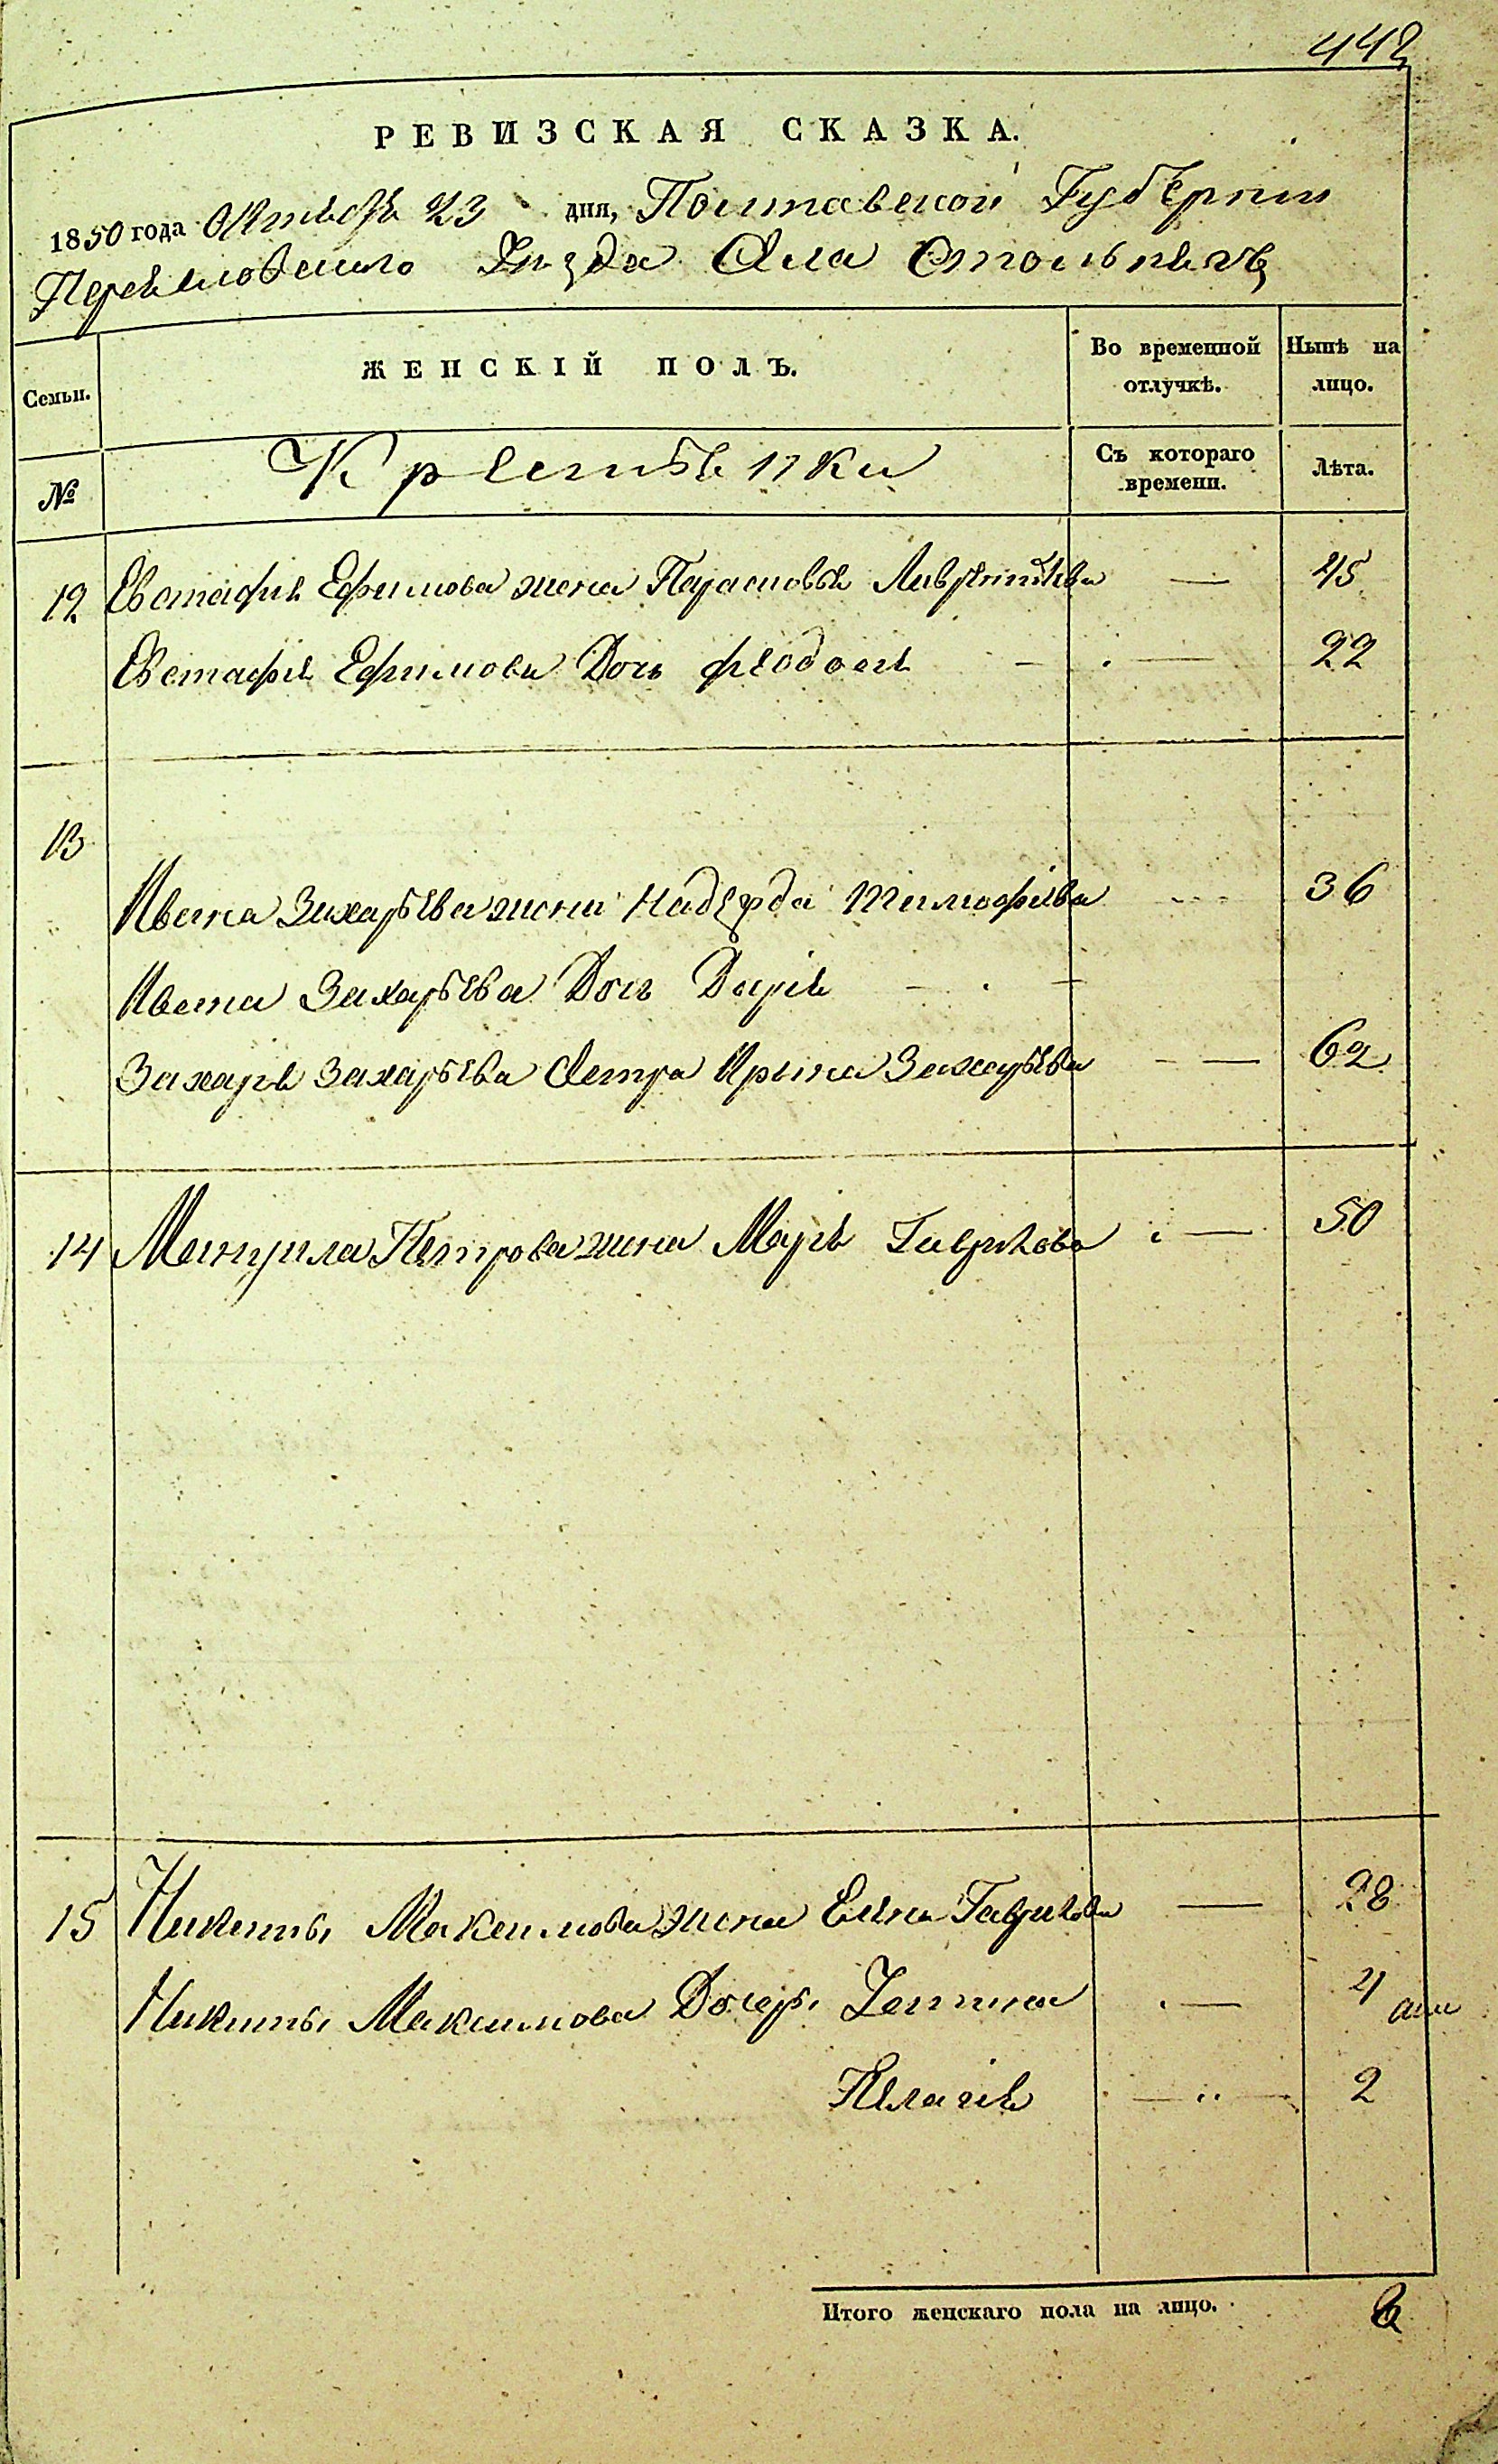 442
РЕВИЗСКАЯ СКАЗКА.
1850 года Октября 23 дня, Полтавской Губернии
Переяславского Уезда Села Стольняги
Семьи. ЖЕНСКІЙ ПОЛЪ. Во временной отлучкѣ. Нынѣ на лицо.
№ Крестьянки Съ котораго времени. Лѣта.
12 Евстафия Ефимова жена Парасковия Лаврентьева — 45
Евстафия Ефимова Дочь Феодосия — 22
13
Ивана Захарьева жена Надежда Тимофеева — 36
Ивана Захарьева Дочь Дария —
Захария Захарьева Сестра Ирина Захарьева — 62
14 Петрова жена Мария — 50
15 Никиты Максимова жена Елена — 28
Никиты Максимова Дочери — 4
Пелагия — 2
Итого женскаго пола на лицо. 8